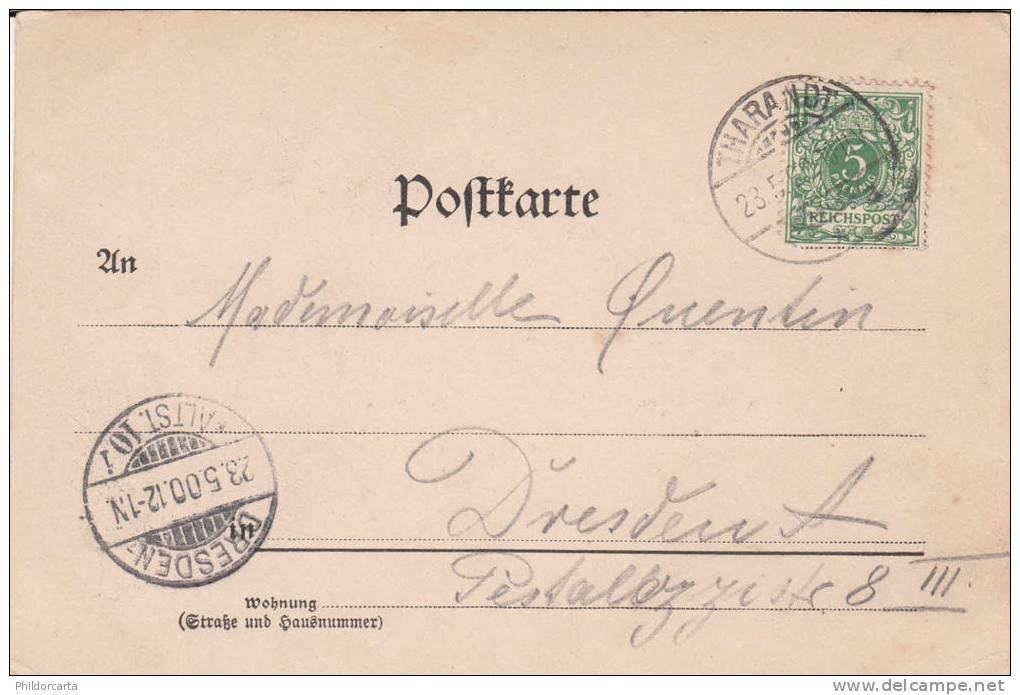 Postkarte
THARANDT
23.5.
5
PFENNIG
REICHSPOST
An
Mademoiselle Quentin
DRESDEN-ALTST. 10 i
23.5.00.12-1N.
in
Dresden A
Pestalozzistr 8 III.
Wohnung
(Straße und Hausnummer)
Phildorcarta
www.delcampe.net